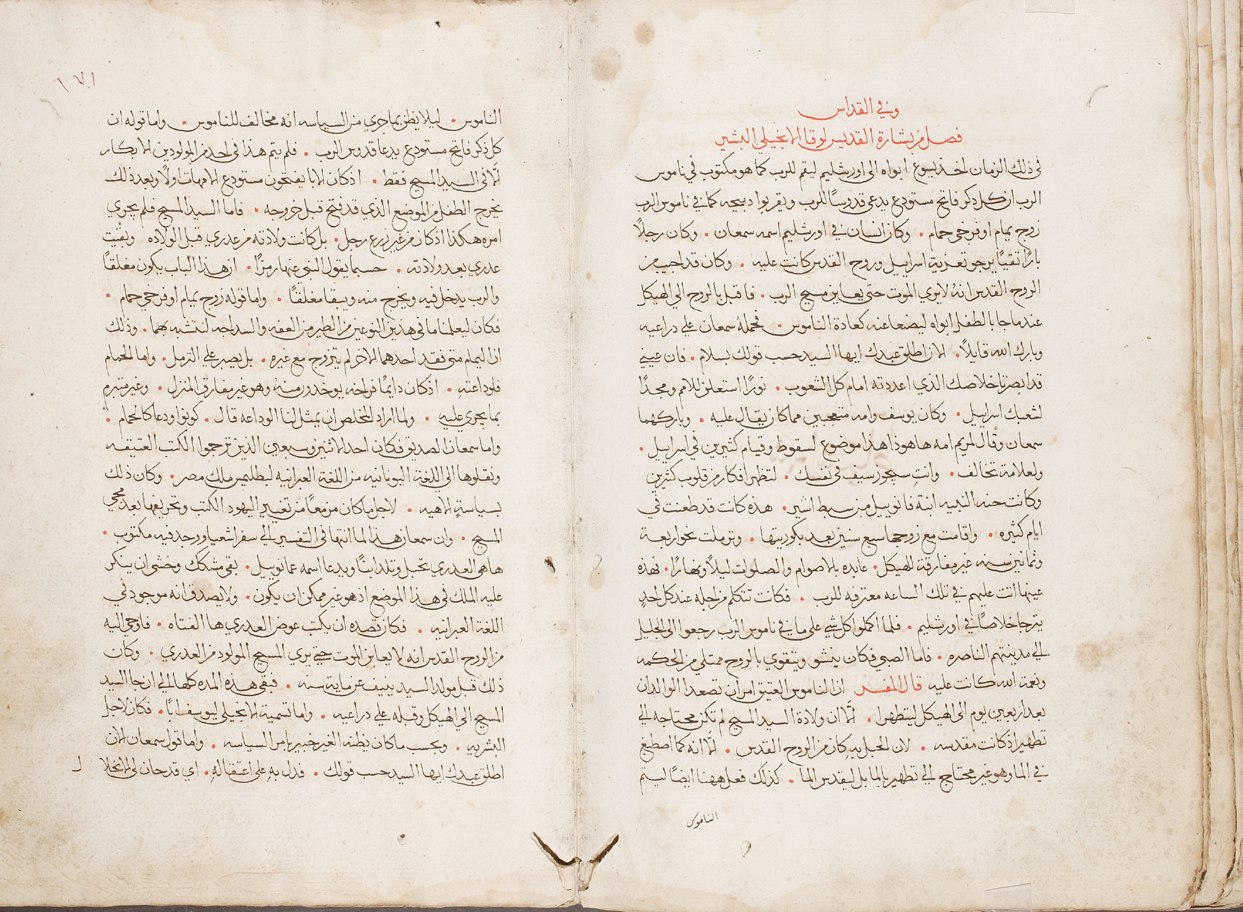 وفي القداس
فصل من بشارة القديس لوقا الانجيلي البشير
في ذلك الزمان اخذ يسوع ابواه الى اورشليم ليقم للرب كما هو مكتوب في ناموس
الرب ان كل ذكر فاتح مستودع يدعى قدوسًا للرب ويقربوا ذبيحه كما في ناموس الرب
زوج يمام او فرخي حمام . وكان انسان في اورشليم اسمه سمعان . وكان رجلًا
بارًا تقيًا يرجو تعزية اسراييل وروح القدس كانت عليه . وكان قد اجيب من
الروح القدس انه لا يري الموت حتى يعاين مسيح الرب . فاقبل بالروح الى الهيكل
عندما جا بالطفل ابواه ليصنعا عنه كعادة الناموس . فحمله سمعان على دراعيه
وبارك الله قايلًا . الان اطلق عبدك ايها السيد حسب قولك بسلام . فان عيني
قد ابصرتا خلاصك الذي اعددته امام كل الشعوب . نورًا استعلن للامم ومجدًا
لشعبك اسراييل . وكان يوسف وامه متعجبين مما كان يقال عليه . وباركهما
سمعان وقال لمريم امه ها هودا هذا موضوع لسقوط وقيام كثيرين في اسراييل .
ولعلامة تخالف . وانت سيجوز سيف في نفسك . لتظهر افكار من قلوب كثيرين
وكانت حنه النبيه ابنة فانوييل من سبط اشير . هذه كانت قد طعنت في
ايام كثيره . واقامت مع زوجها سبع سنين بعد بكوريتها . وترملت نحو اربعة
وثمانين سنه غير مفارقة للهيكل . عابده بالاصوام والصلوات ليلًا ونهارًا . فهذه
عينها اتت عليهم في تلك الساعه معترفه للرب . فكانت تتكلم من اجله عند كل احدٍ
يترجا خلاصًا في اورشليم . فلما اكملوا كل شي على ما في ناموس الرب رجعوا الى الجليل
الى مدينتهم الناصره . فاما الصبي فكان ينشو ويتقوي بالروح ممتلي من الحكمه
ونعمة الله كانت عليه قال المفسر ان الناموس العتيق امر ان تصعد الوالدان
بعد اربعين يوم الى الهيكل ليتطهرا . الّا ان ولادة السيد المسيح لم تكن محتاجه الى
تطهير اذ كانت مقدسه . لان الحبل به كان من الروح القدس . الّا انه كما اصطبغ
في الما وهو غير محتاج الى تطهير بالما بل ليقدس الما . كذلك فعل ههنا ايضًا ليتم
الناموس
١٧١
الناموس . ليلا يظن بما جري من السياسه انه مخالف للناموس . واما قوله ان
كل ذكر فاتح مستودع يدعا قدوس الرب . فلم يتم هذا في احد من المولودين الابكار
الّا في السيد المسيح فقط . اذ كان الابا يفتحون مستودع الامهات اولًا وبعد ذلك
يخرج الطفل من الموضع الذي قد فتح قبل خروجه . فاما السيد المسيح فلم يجري
امره هكذا اذ كان من غير زرع رجل . بل كانت ولادته من عدري قبل الولاده وبقيت
عدري بعد ولادته . حسبما يقول النبي عنها رمزًا . ان هذا الباب يكون مغلقًا
والرب يدخل فيه ويخرج منه ويبقا مغلقًا . واما قوله زوج يمام او فرخي حمام .
فكان ليعلمنا ما في هذين النوعين من الطير من العفه والسداجه لنتشبه بهما . وذلك
ان اليمام متى فقد احدهما الاخر لم يتزوج مع غيره . بل يصبر على الترمل . واما الحمام
فلوداعته . اذ كان دايمًا فراخه يوخدوا منه وهو غير مفارق المنزل . وغير متبرم
بما يجري عليه . ولما اراد المخلص ان يمثل لنا الوداعه قال . كونوا ودعا كالحمام .
واما سمعان الصديق فكان احد الاثنين وسبعين الذين ترجموا الكتب العتيقه
ونقلوها الى اللغة اليونانيه من اللغة العبرانيه لبطلميوس ملك مصر . وكان ذلك
بسياسةٍ الاهيه . لاجل ما كان مزمعًا من تغيير اليهود الكتب وتحريفها بعد مجي
المسيح . وان سمعان هذا لما انتها في التفسير الى سفر اشعيا وجد فيه مكتوب .
ها هي العدري تحبل وتلد ابنًا ويدعا اسمه عمانوييل . بقي متشكك وخشي ان ينكر
عليه الملك في هذا الموضع اذ هو غير ممكن ان يكون . ولا يصدق انه موجود في
اللغة العبرانيه . فكان قصده ان يكتب عوض العدري ها الفتاه . فاوحي اليه
من الروح القدس انه لا يعاين الموت حتى يري المسيح المولود من العدري . وكان
ذلك قبل مولد السيد بنيف عن ماية سنه . فبقي هذه المده كلها الى ان جا السيد
المسيح الى الهيكل وقبله على دراعيه . واما تسمية الانجيلي ليوسف ابًا . فكان لاجل
البشريه . وبحسب ما كان يظنه الغير خبير بامر السياسه . واما قول سمعان الان
اطلق عبدك ايها السيد حسب قولك . فدل به على اعتقاله . اي قد حان لي الانحلا
ل